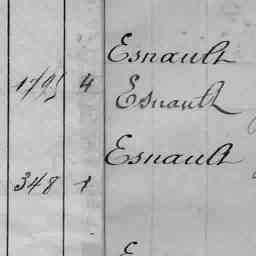 Esnault
4 Esnault
Esnault
348 1
E